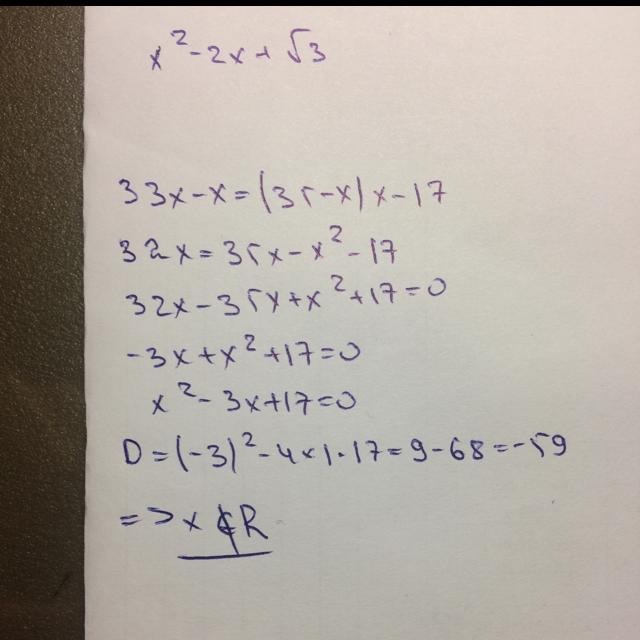 x² - 2x + √3
33x - x = (35 - x)x - 17
32x = 35x - x² - 17
32x - 35x + x² + 17 = 0
-3x + x² + 17 = 0
x² - 3x + 17 = 0
D = (-3)² - 4 × 1 · 17 = 9 - 68 = -59
=> x ∉ R